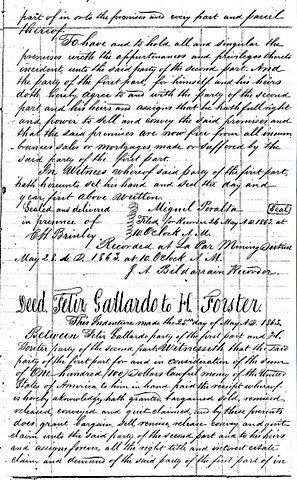 part of in or to the premises and every part and parcel
thereof.
To have and to hold all and singular the
premises with the appurtenances and privileges thereto
incident unto the said party of the second part. And
the party of the first part, for himself and his heirs
doth hereby agree to and with the party of the second
part and his heirs and assigns that he hath full right
and power to sell and convey the said premises, and
that the said premises are now free from all incum
brances sales or mortgages, made or suffered by the
said party of the first part.
In Witness whereof said party of the first part,
hath hereunto set his hand and seal the day and
year first above written.
Sealed and delivered Miguel Peralta (Seal)
in presence of Filed for Record 26 May A.D. 1863. at
E H Brinley 10 O'Clock A.M.
Recorded at La Paz Mining District
May 28. A.D. 1863. at 10. O'Clock A.M.
J. A. Beldarrain Recorder
Deed, Felix Gallardo to H. Forster.
This Indenture made the 25th day of May A.D. 1863.
Between Felix Gallardo party of the first part and H.
Forster party of the second part Witnesseth that the said
party of the first part for and in consideration of the sum
of One hundred (100) Dollars lawful money of the United
States of America to him in hand paid the receipt whereof
is hereby acknowledged, hath granted, bargained, sold, remised
released, conveyed and quit claimed, and by these presents
does grant bargain, sell, remise, release convey and quit
claim unto the said party of the second part and to his heirs
and assigns forever, all the right title and interest estate
claim and demand of the said party of the first part of in